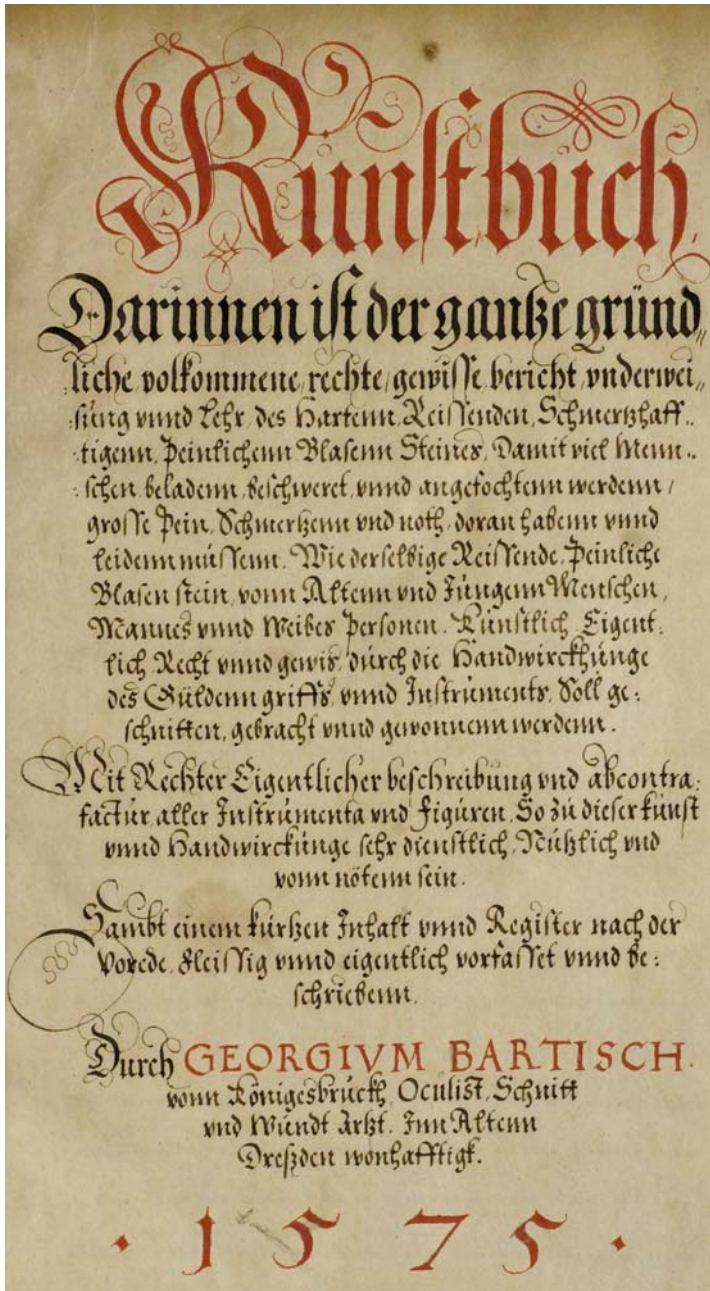 Kunstbuch,
Darinnen ist der gantze gründ„
liche volkommene, rechte, gewisse, bericht, vnderwei„
sung vnnd Lehr, des Hartenn, Reissenden, Schmertzhaff„
tigenn, Peinlichenn Blasenn Steines, Damit viel Menn„
schen beladenn, beschweret, vnnd angefochtenn werdenn,
grosse Pein, Schmertzenn vnd noth, doran habenn vnnd
leidenn müssenn. Wie derselbige Reissende, Peinliche
Blasen stein, vonn Altenn vnd Jungenn Menschen,
Mannes vnnd Weibes Personen. Künstlich, Eigent:
lich Recht vnnd gewis, durch die Handwirckhunge
des Güldenn griffs, vnnd Instruments, Soll ge:
schnitten, gebracht vnnd gewonnenn werdenn.
Mit Rechter Eigentlicher beschreibung vnd abcontra:
factur, aller Instrumenta vnd figuren, So zu dieser kunst
vnnd Handwirckunge sehr dienstlich, Nützlich vnd
vonn nötenn sein.
Sambt einem kurtzen Inhalt vnnd Register nach der
Vorede, fleissig vnnd eigentlich vorfasset vnnd be:
schriebenn.
Durch GEORGIVM BARTISCH.
vonn Königesbrückh, Oculist, Schnitt
vnd Wundt Artzt. Inn Altenn
Dreszden wonhafftigk.
· 1575 ·